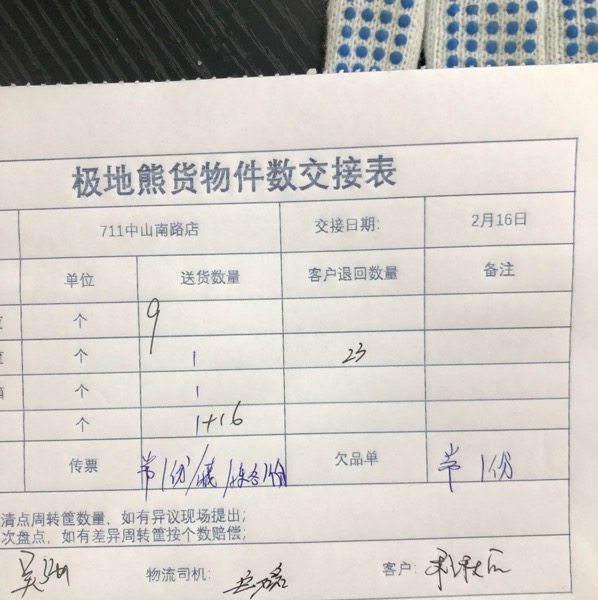 极地熊货物件数交接表
711中山南路店 交接日期: 2月16日
单位 送货数量 客户退回数量 备注
个 9
个 1 23
箱 个 1
个 1+16
传票 欠品单 1份
清点周转筐数量，如有异议现场提出；
次盘点，如有差异周转筐按个数赔偿；
物流司机: 客户: